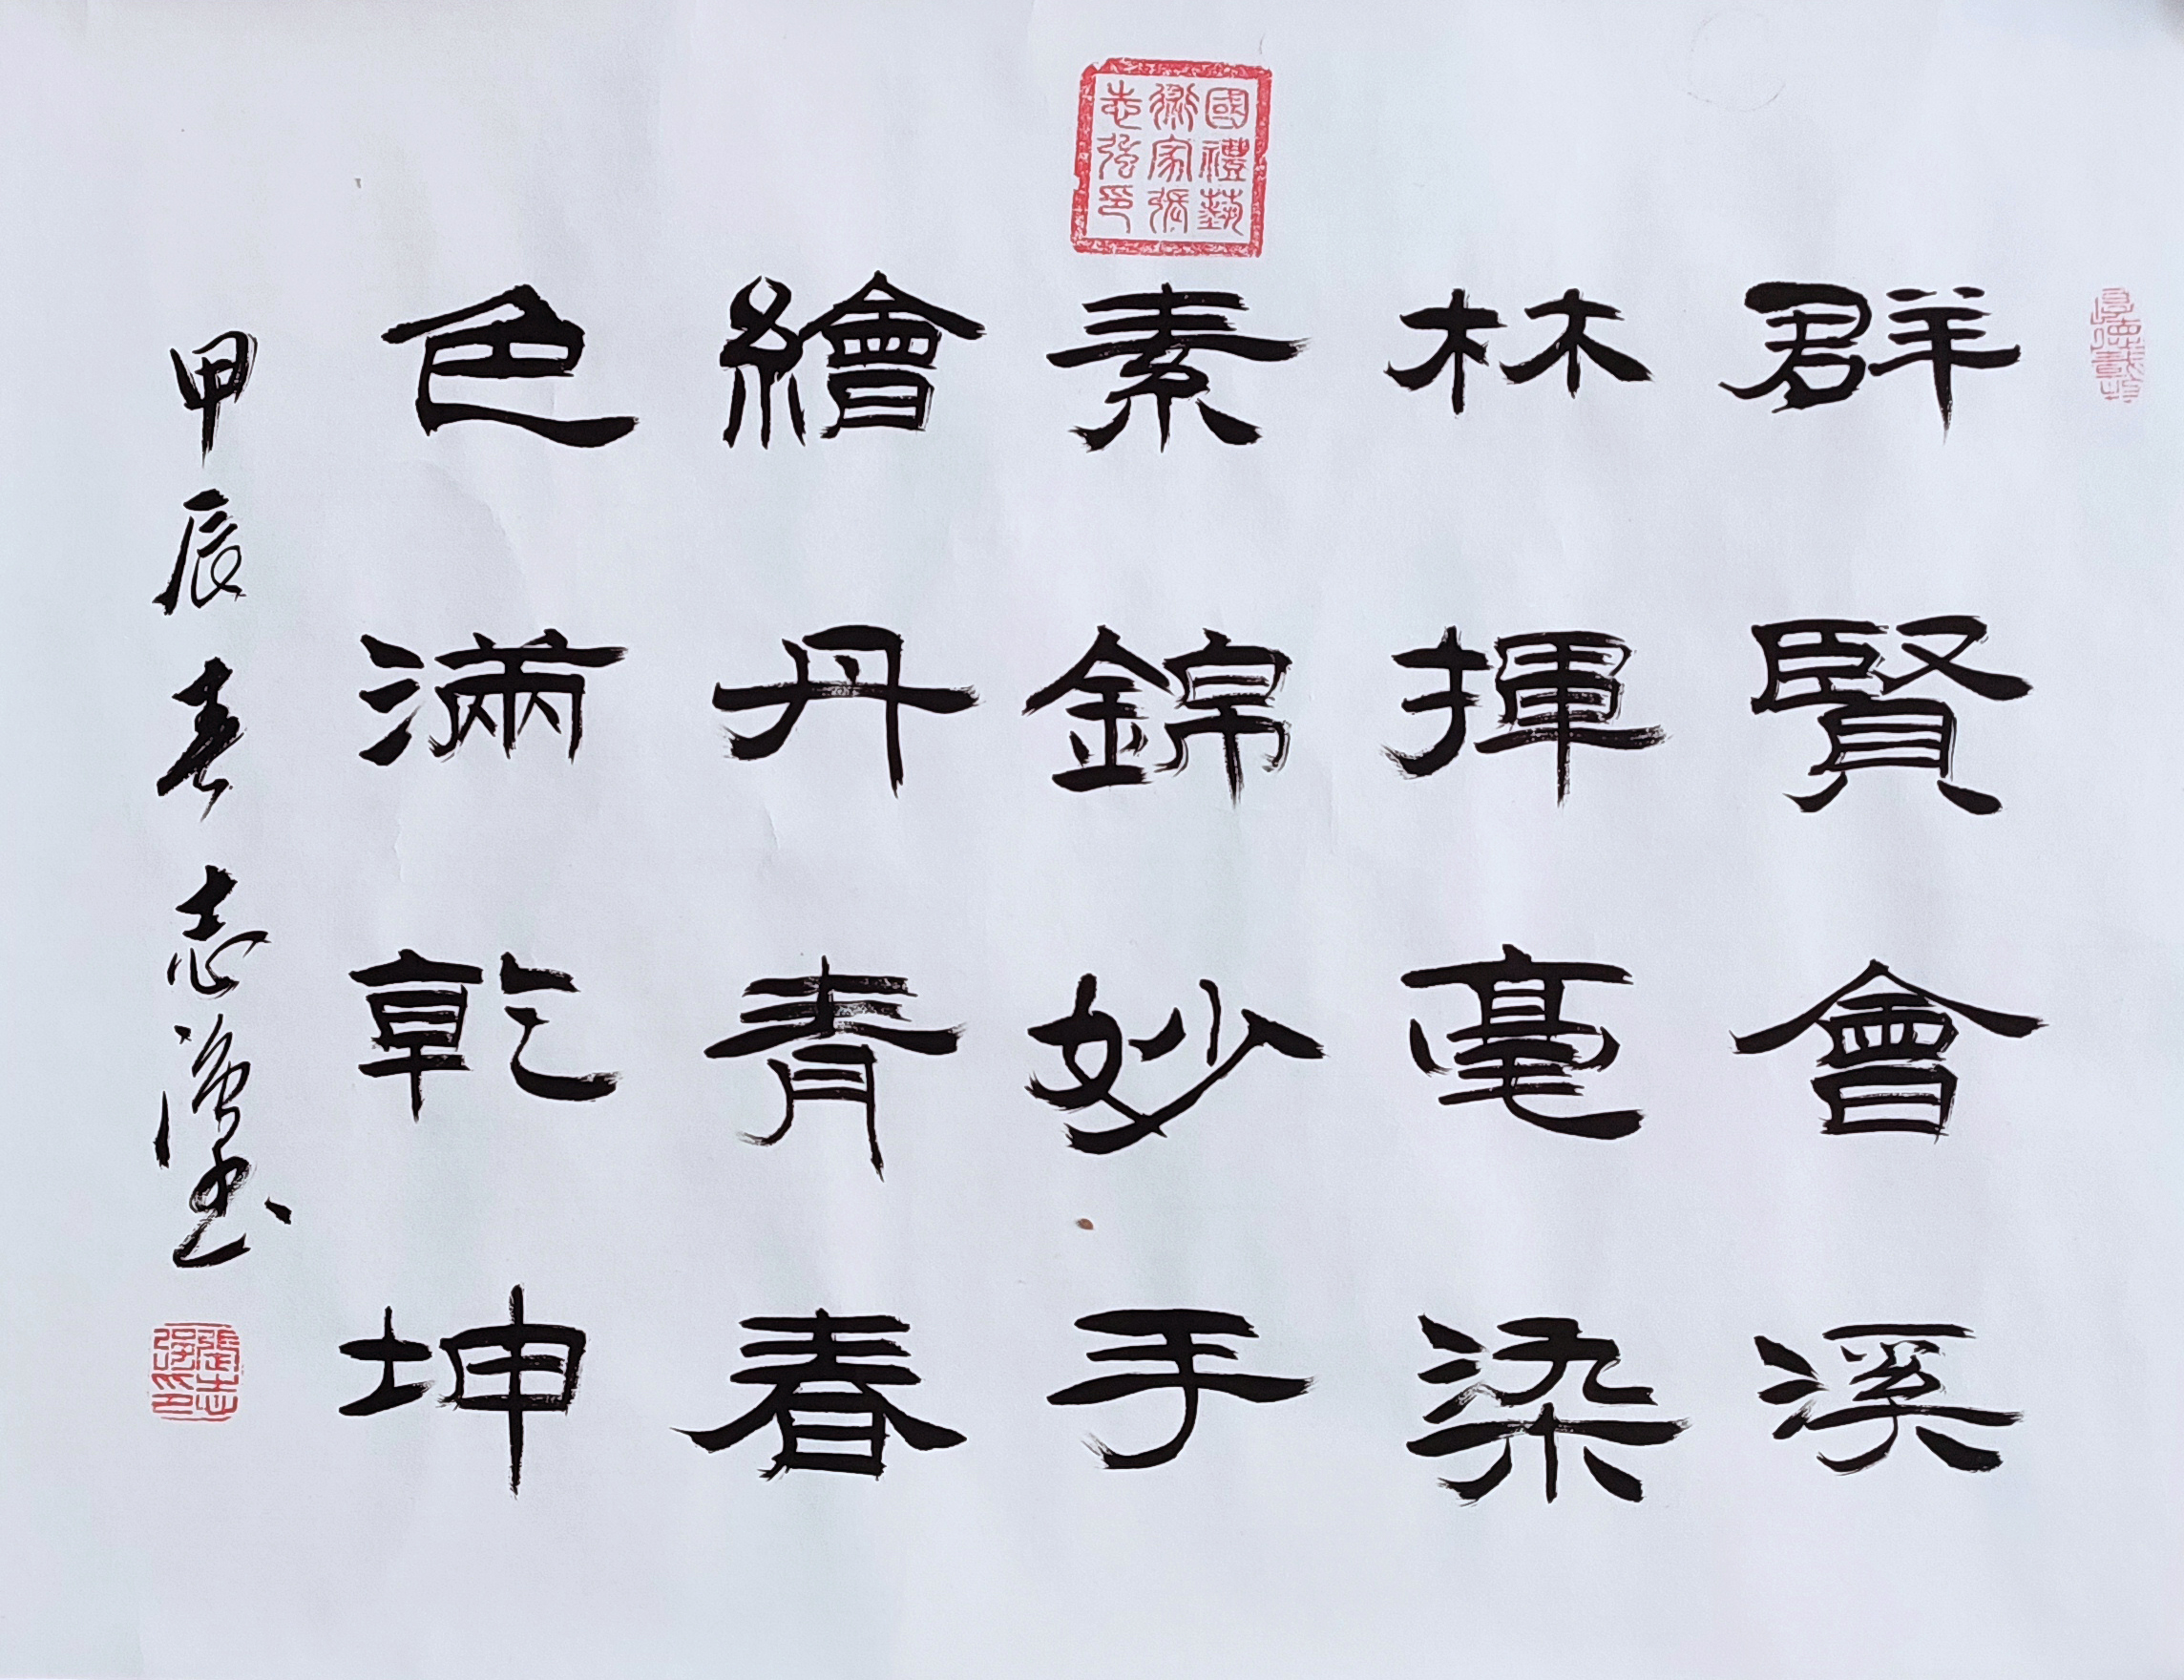 厚德載物
群賢會溪
林揮毫染
素錦妙手
繪丹青春
色滿乾坤
甲辰春志強書
國禮藝
術家張
志強印
張志強印